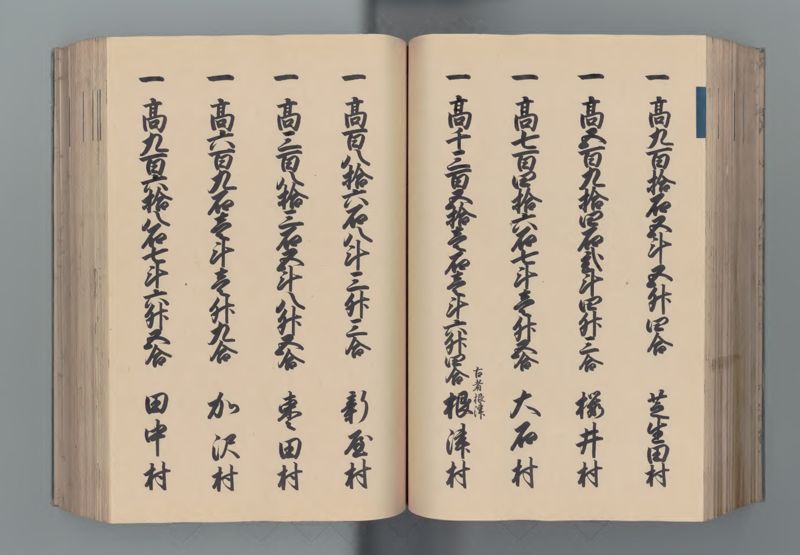 一 高九百拾石五斗五升四合 芝生田村
一 高五百九拾四石弐斗四升三合 桜井村
一 高七百四拾六石七斗壱升五合 大石村
一 高千三百五拾壱石壱斗六升四合 古者祢津 根津村
一 高百八拾六石八斗三升三合 新屋村
一 高三百八拾三石五斗八升五合 枣田村
一 高六百九石壱斗壱升九合 加沢村
一 高九百六拾八石七斗六升五合 田中村